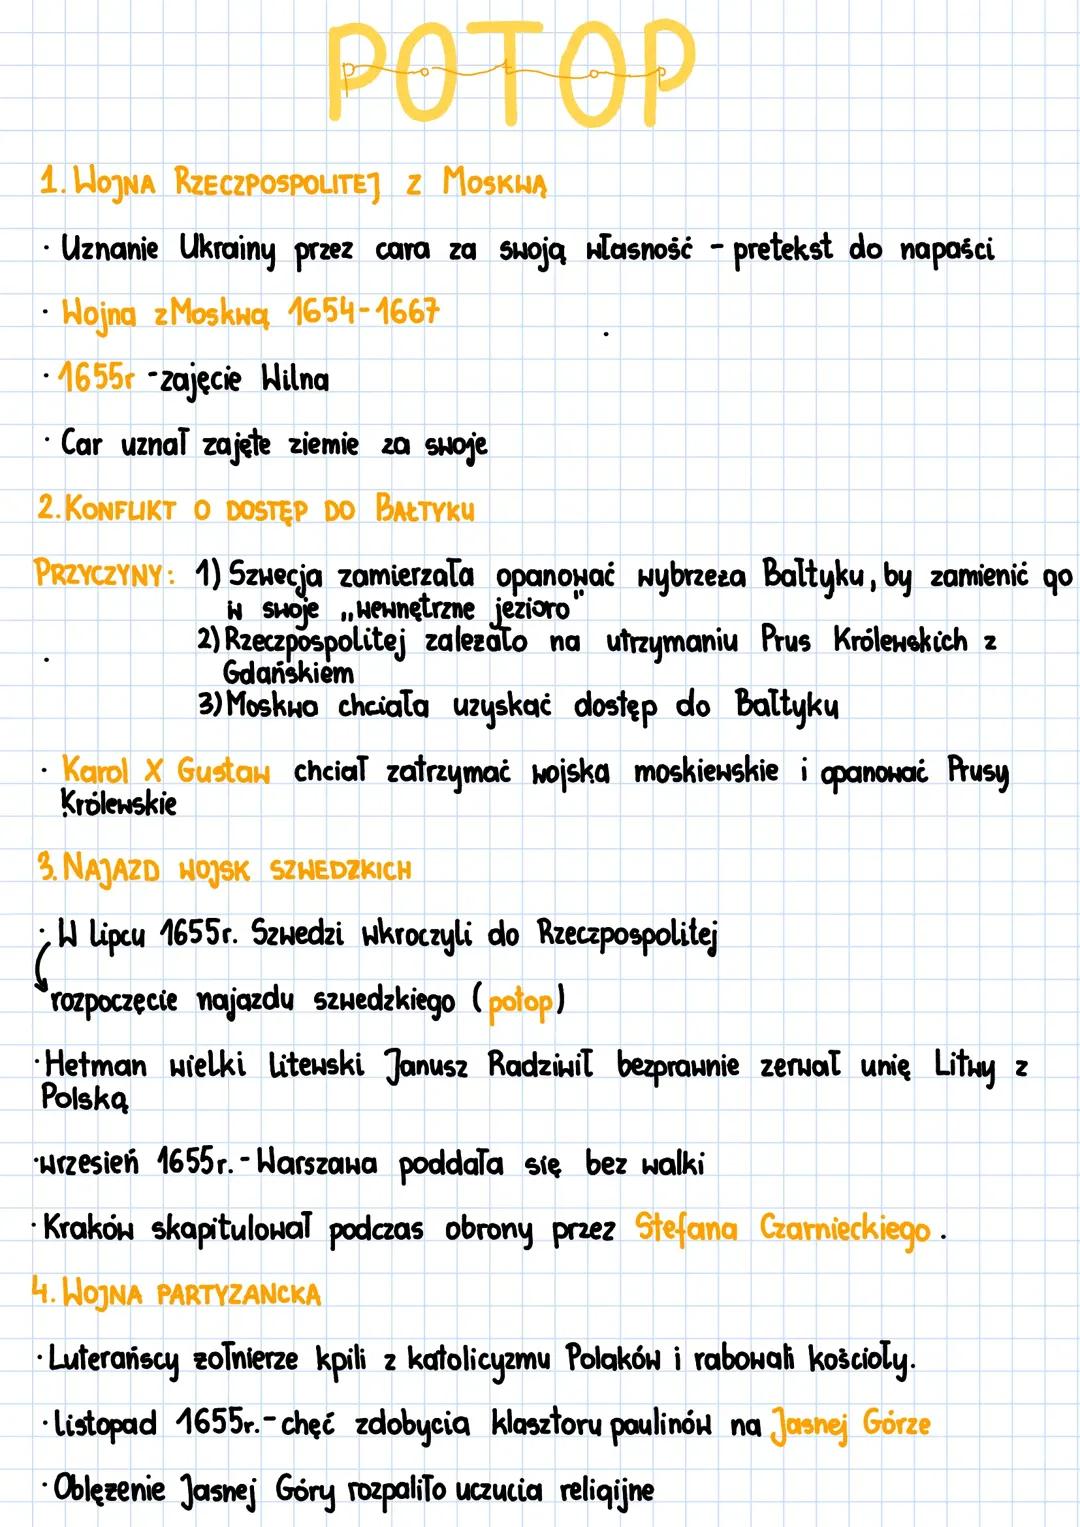 POTOP
potop
1. WOJNA RZECZPOSPOLITEJ Z MOSKWĄ
· Uznanie Ukrainy przez cara za swoją własność - pretekst do napaści
· Wojna z Moskwą 1654-1667
· 1655r - zajęcie Wilna
· Car uznał zajęte ziemie za swoje
2. KONFLIKT O DOSTĘP DO BAŁTYKU
PRZYCZYNY: 1) Szwecja zamierzała opanować wybrzeża Bałtyku, by zamienić go
w swoje „wewnętrzne jezioro"
2) Rzeczpospolitej zależało na utrzymaniu Prus Królewskich z
Gdańskiem
3) Moskwa chciała uzyskać dostęp do Bałtyku
· Karol X Gustaw chciał zatrzymać wojska moskiewskie i opanować Prusy
Królewskie
3. NAJAZD WOJSK SZWEDZKICH
· W lipcu 1655r. Szwedzi wkroczyli do Rzeczpospolitej
rozpoczęcie najazdu szwedzkiego (potop)
· Hetman wielki litewski Janusz Radziwił bezprawnie zerwał unię Litwy z
Polską
· wrzesień 1655r. - Warszawa poddała się bez walki
· Kraków skapitulował podczas obrony przez Stefana Czarnieckiego.
4. WOJNA PARTYZANCKA
· Luterańscy żołnierze kpili z katolicyzmu Polaków i rabowali kościoły.
· listopad 1655r. - chęć zdobycia klasztoru paulinów na Jasnej Górze
· Oblężenie Jasnej Góry rozpaliło uczucia religijne